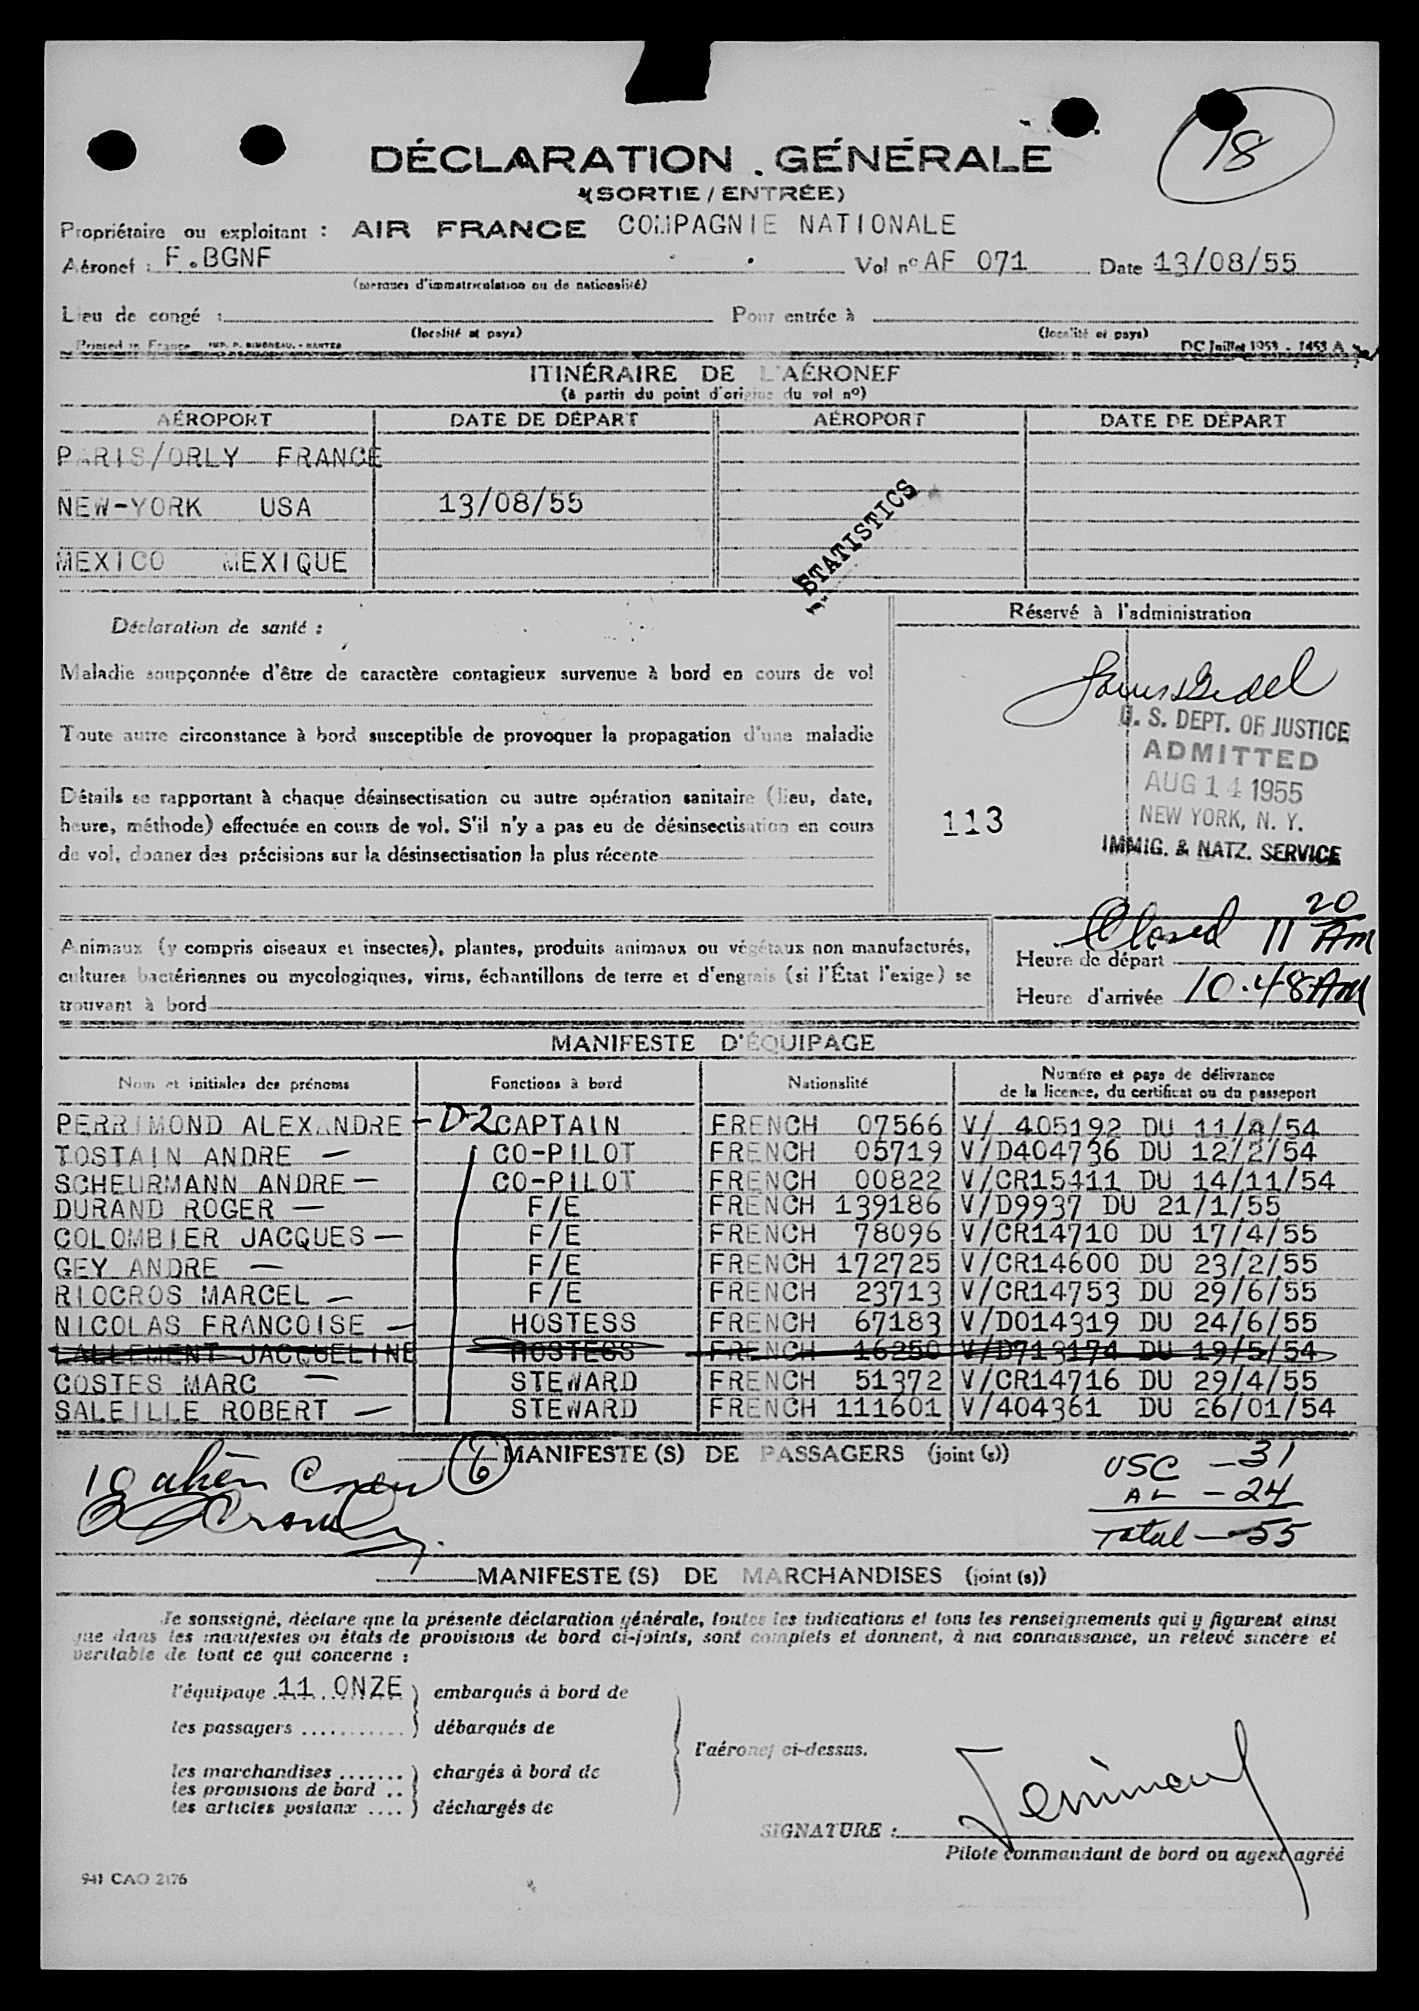 18
DÉCLARATION GÉNÉRALE
(SORTIE / ENTRÉE)
Propriétaire ou exploitant : AIR FRANCE COMPAGNIE NATIONALE
Aéronef : F.BGNF Vol nº AF 071 Date 13/08/55
(marques d'immatriculation ou de nationalité)
Lieu de congé : Pour entrée à
(localité et pays) (localité et pays)
Printed in France IMP. P. SIMONEAU. - NANTES DC Juillet 1953 - 1453 A
ITINÉRAIRE DE L'AÉRONEF
(à partir du point d'origine du vol nº)
AÉROPORT DATE DE DÉPART AÉROPORT DATE DE DÉPART
PARIS/ORLY FRANCE
NEW-YORK USA 13/08/55
MEXICO MEXIQUE
STATISTICS
Réservé à l'administration
Déclaration de santé :
Maladie soupçonnée d'être de caractère contagieux survenue à bord en cours de vol
Toute autre circonstance à bord susceptible de provoquer la propagation d'une maladie
Détails se rapportant à chaque désinsectisation ou autre opération sanitaire (lieu, date,
heure, méthode) effectuée en cours de vol. S'il n'y a pas eu de désinsectisation en cours
de vol, donnez des précisions sur la désinsectisation la plus récente
113
U. S. DEPT. OF JUSTICE
ADMITTED
AUG 14 1955
NEW YORK, N. Y.
IMMIG. & NATZ. SERVICE
Animaux (y compris oiseaux et insectes), plantes, produits animaux ou végétaux non manufacturés,
cultures bactériennes ou mycologiques, virus, échantillons de terre et d'engrais (si l'État l'exige) se
trouvant à bord
Closed 11 20 AM
Heure de départ
Heure d'arrivée 10.48 AM
MANIFESTE D'ÉQUIPAGE
Nom et initiales des prénoms Fonctions à bord Nationalité Numéro et pays de délivrance
de la licence, du certificat ou du passeport
PERRIMOND ALEXANDRE - D-2 CAPTAIN FRENCH 07566 V/ 405192 DU 11/8/54
TOSTAIN ANDRE — CO-PILOT FRENCH 05719 V/D404736 DU 12/2/54
SCHEURMANN ANDRE — CO-PILOT FRENCH 00822 V/CR15411 DU 14/11/54
DURAND ROGER — F/E FRENCH 139186 V/D9937 DU 21/1/55
COLOMBIER JACQUES — F/E FRENCH 78096 V/CR14710 DU 17/4/55
GEY ANDRE — F/E FRENCH 172725 V/CR14600 DU 23/2/55
RIOCROS MARCEL — F/E FRENCH 23713 V/CR14753 DU 29/6/55
NICOLAS FRANCOISE — HOSTESS FRENCH 67183 V/D014319 DU 24/6/55
LALLEMENT JACQUELINE HOSTESS FRENCH 16250 V/D713174 DU 19/5/54
COSTES MARC — STEWARD FRENCH 51372 V/CR14716 DU 29/4/55
SALEILLE ROBERT — STEWARD FRENCH 111601 V/404361 DU 26/01/54
MANIFESTE (S) DE PASSAGERS (joint (s))
10 alien Crew 6
USC — 31
AL — 24
Total — 55
MANIFESTE (S) DE MARCHANDISES (joint (s))
Je soussigné, déclare que la présente déclaration générale, toutes les indications et tous les renseignements qui y figurent ainsi
que dans les manifestes ou états de provisions de bord ci-joints, sont complets et donnent, à ma connaissance, un relevé sincère et
véritable de tout ce qui concerne :
l'équipage 11 ONZE ) embarqués à bord de
les passagers ........... ) débarqués de
l'aéronef ci-dessus.
les marchandises ....... ) chargés à bord de
les provisions de bord ..
les articles postaux .... ) déchargés de
SIGNATURE :
Pilote commandant de bord ou agent agréé
941 CAO 2176